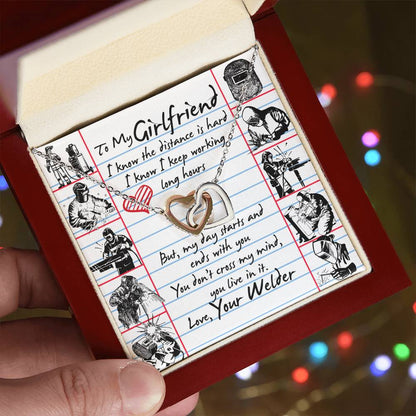 To My Girlfriend
I know the distance is hard
I know I keep working
long hours
But, my day starts and
ends with you
You don't cross my mind,
you live in it.
Love, Your Welder